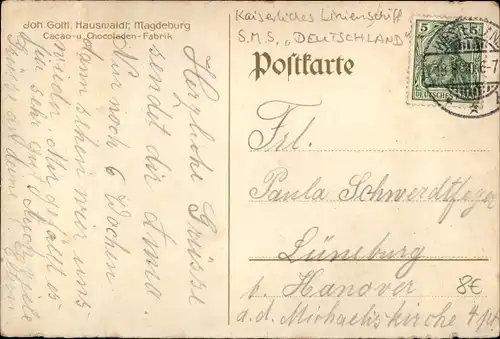 Joh. Gottl. Hauswaldt, Magdeburg
Cacao- u. Chocoladen-Fabrik
Kaiserliches Linienschiff
S.M.S. „DEUTSCHLAND"
Postkarte
5
Herzliche Grüsse
sendet dir Erna.
Nur noch 6 Wochen
dann sehen wier uns
wieder. Mir gefällt es
hir sehr gut.
Frl.
Paula Schwerdtfeger
Lüneburg
b. Hanover
a.d. Michaeliskirche 4
8€